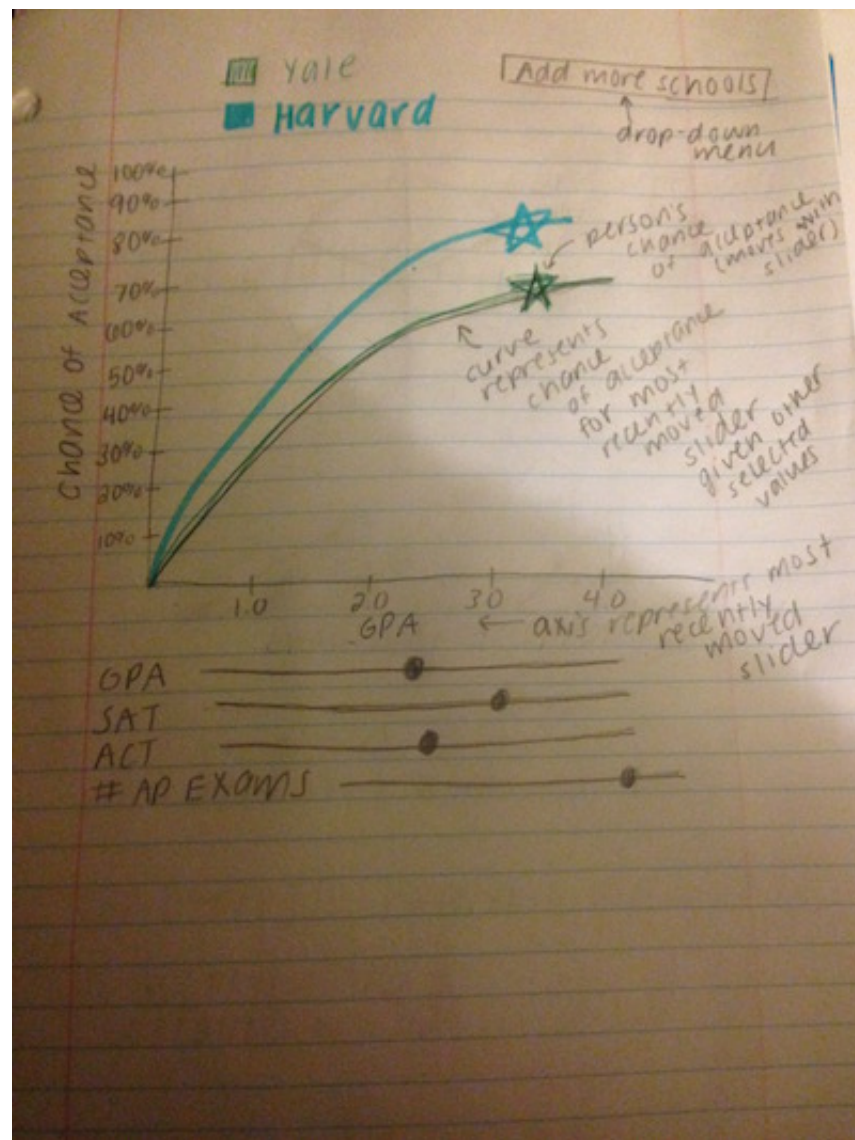 Yale
Harvard
Add more schools
drop-down
menu
Chance of Acceptance
100%
90%
80%
70%
60%
50%
40%
30%
20%
10%
person's
chance
of acceptance
(moves with
slider)
curve
represents
chance
of acceptance
for most
recently
moved
slider
given other
selected
values
1.0 2.0 3.0 4.0
GPA
← axis represents most
recently
moved
slider
GPA
SAT
ACT
# AP Exams